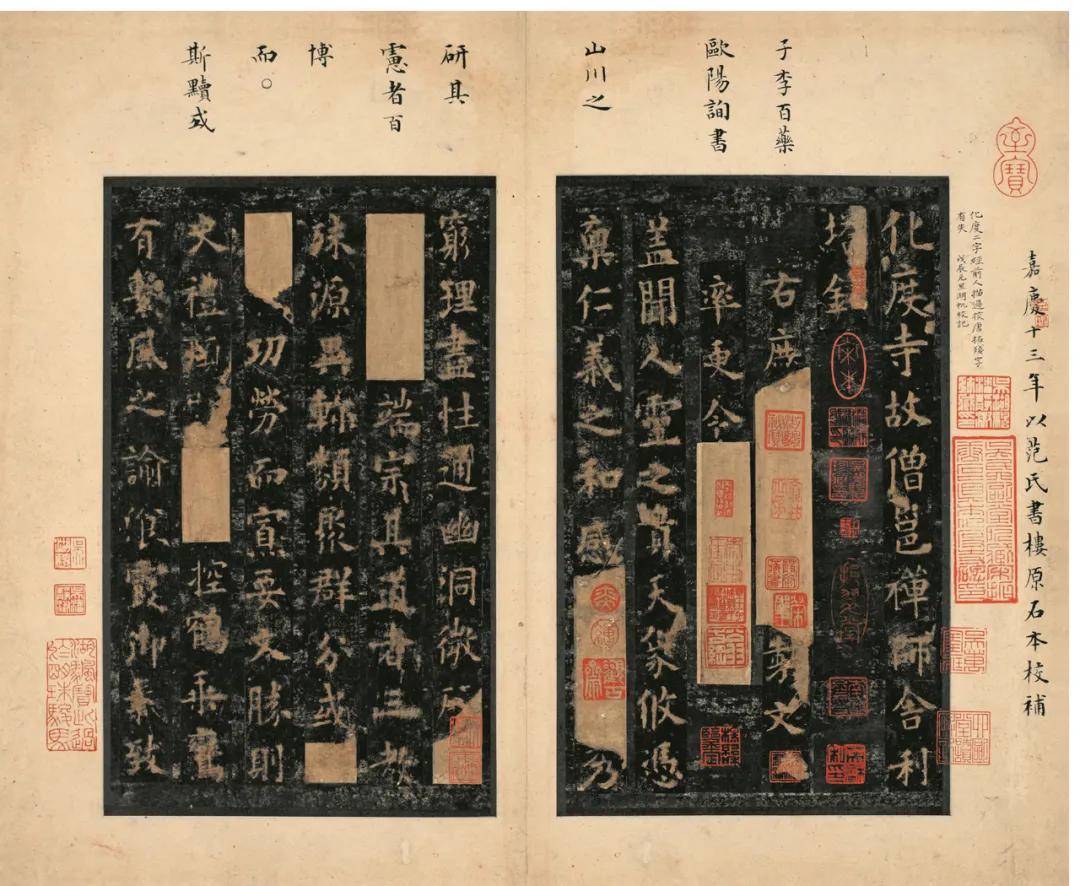 至寶
嘉慶十三年以范氏書樓原石本校補
化度二字經前人描過校唐拓殘字
有失 戊辰 湖帆校記
子李百藥
歐陽詢書
山川之
化度寺故僧邕禪師舍利
塔銘
右庶 製文
率更令
盖聞人靈之貴天象攸憑
稟仁義之和感 乃
研具
憲者百
博
而。
斯賾或
窮理盡性通幽洞微
端宗其道者三教
殊源異軫類聚群分或
功勞而寡要文勝則
史禮煩 控鶴乘鸞
有繫風之諭飡霞御氣致